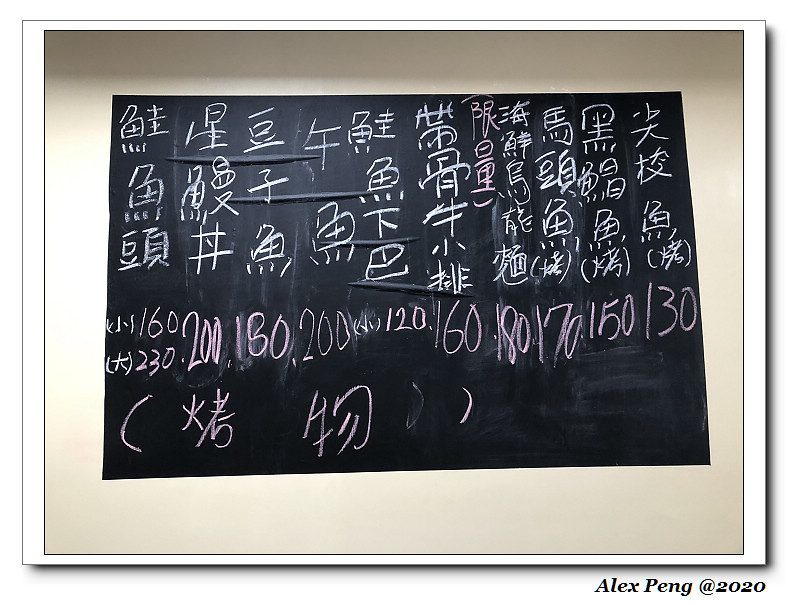 尖梭魚(烤)
130
黑鯧魚(烤)
150
馬頭魚(烤)
170
海鮮烏龍麵
180
(限量)
帶骨牛小排
160
鮭魚下巴
(小)120
午魚
200
豆子魚
180
星鰻丼
200
鮭魚頭
(小)160
(大)230
(烤物)
Alex Peng @2020